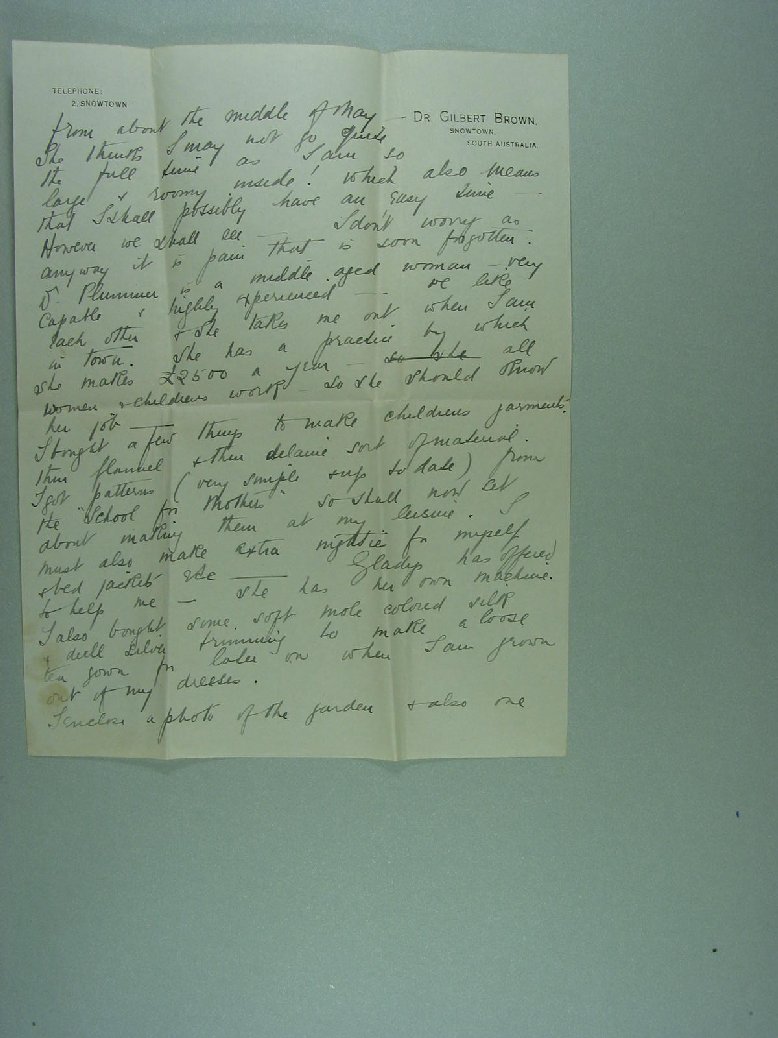 TELEPHONE:
2, SNOWTOWN
DR GILBERT BROWN,
SNOWTOWN,
SOUTH AUSTRALIA.
from about the middle of May —
She thinks I may not go quite
the full time as I am so
large & roomy inside! which also means
that I shall possibly have an easy time —
However we shall see — I don't worry as
anyway it is pain that is soon forgotten.
Dr Plummer is a middle aged woman – very
capable & highly experienced — we like
each other & she takes me out when I am
in town. She has a practice by which
she makes £2500 a year — so she all
women & childrens work – so she should know
her job —
I bought a few things to make childrens garments.
thin flannel & thin delaine sort of material.
I got patterns (very simple & up to date) from
the "School for Mothers" so shall now set
about making them at my leisure. I
must also make extra nightie for myself
& bed jackets etc — Gladys has offered
to help me — she has her own machine.
I also bought some soft mole colored silk
& dull silver trimming to make a loose
tea gown for later on when I am grown
out of my dresses.
I enclose a photo of the garden & also one